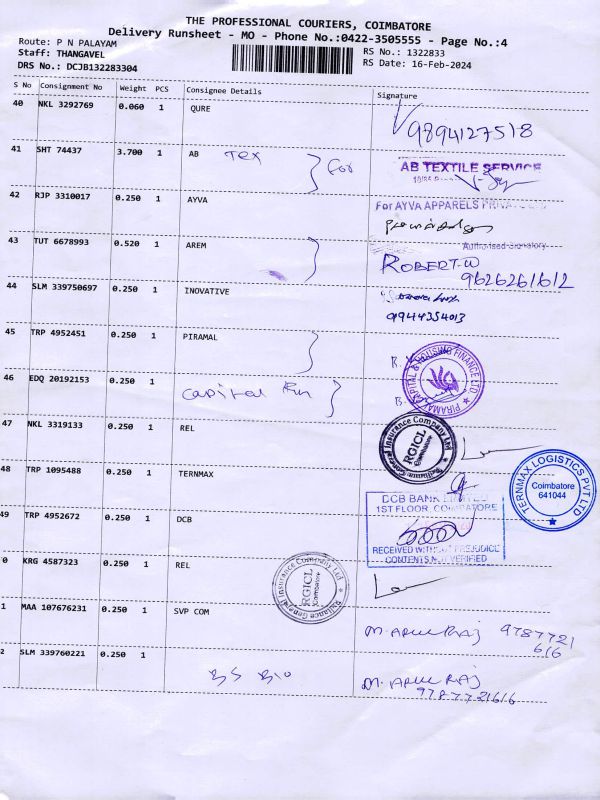 THE PROFESSIONAL COURIERS, COIMBATORE
Delivery Runsheet - MO - Phone No.:0422-3505555 - Page No.:4
Route: P N PALAYAM
Staff: THANGAVEL
RS No.: 1322833
DRS No.: DCJB132283304
RS Date: 16-Feb-2024
S No Consignment No Weight PCS Consignee Details Signature
40 NKL 3292769 0.060 1 QURE
9894127518
41 SHT 74437 3.700 1 AB Tex For
AB TEXTILE SERVICE
42 RJP 3310017 0.250 1 AYVA
For AYVA APPARELS
Authorised Signatory
43 TUT 6678993 0.520 1 AREM
ROBERT.W
9626261612
44 SLM 339750697 0.250 1 INOVATIVE
9944354013
45 TRP 4952451 0.250 1 PIRAMAL
PIRAMAL CAPITAL & HOUSING FINANCE LTD
46 EDQ 20192153 0.250 1
Capital
47 NKL 3319133 0.250 1 REL
Reliance General Insurance Company Ltd
RGICL
Coimbatore
48 TRP 1095488 0.250 1 TERNMAX
TERNMAX LOGISTICS PVT LTD
Coimbatore
641044
49 TRP 4952672 0.250 1 DCB
DCB BANK LIMITED
1ST FLOOR, COIMBATORE
RECEIVED WITHOUT PREJUDICE
CONTENTS NOT VERIFIED
0 KRG 4587323 0.250 1 REL
Reliance General Insurance Company Ltd
RGICL
Coimbatore
1 MAA 107676231 0.250 1 SVP COM
M. ARUL RAJ 9787721
616
2 SLM 339760221 0.250 1
BS Bio
M. ARUL RAJ
9787721616